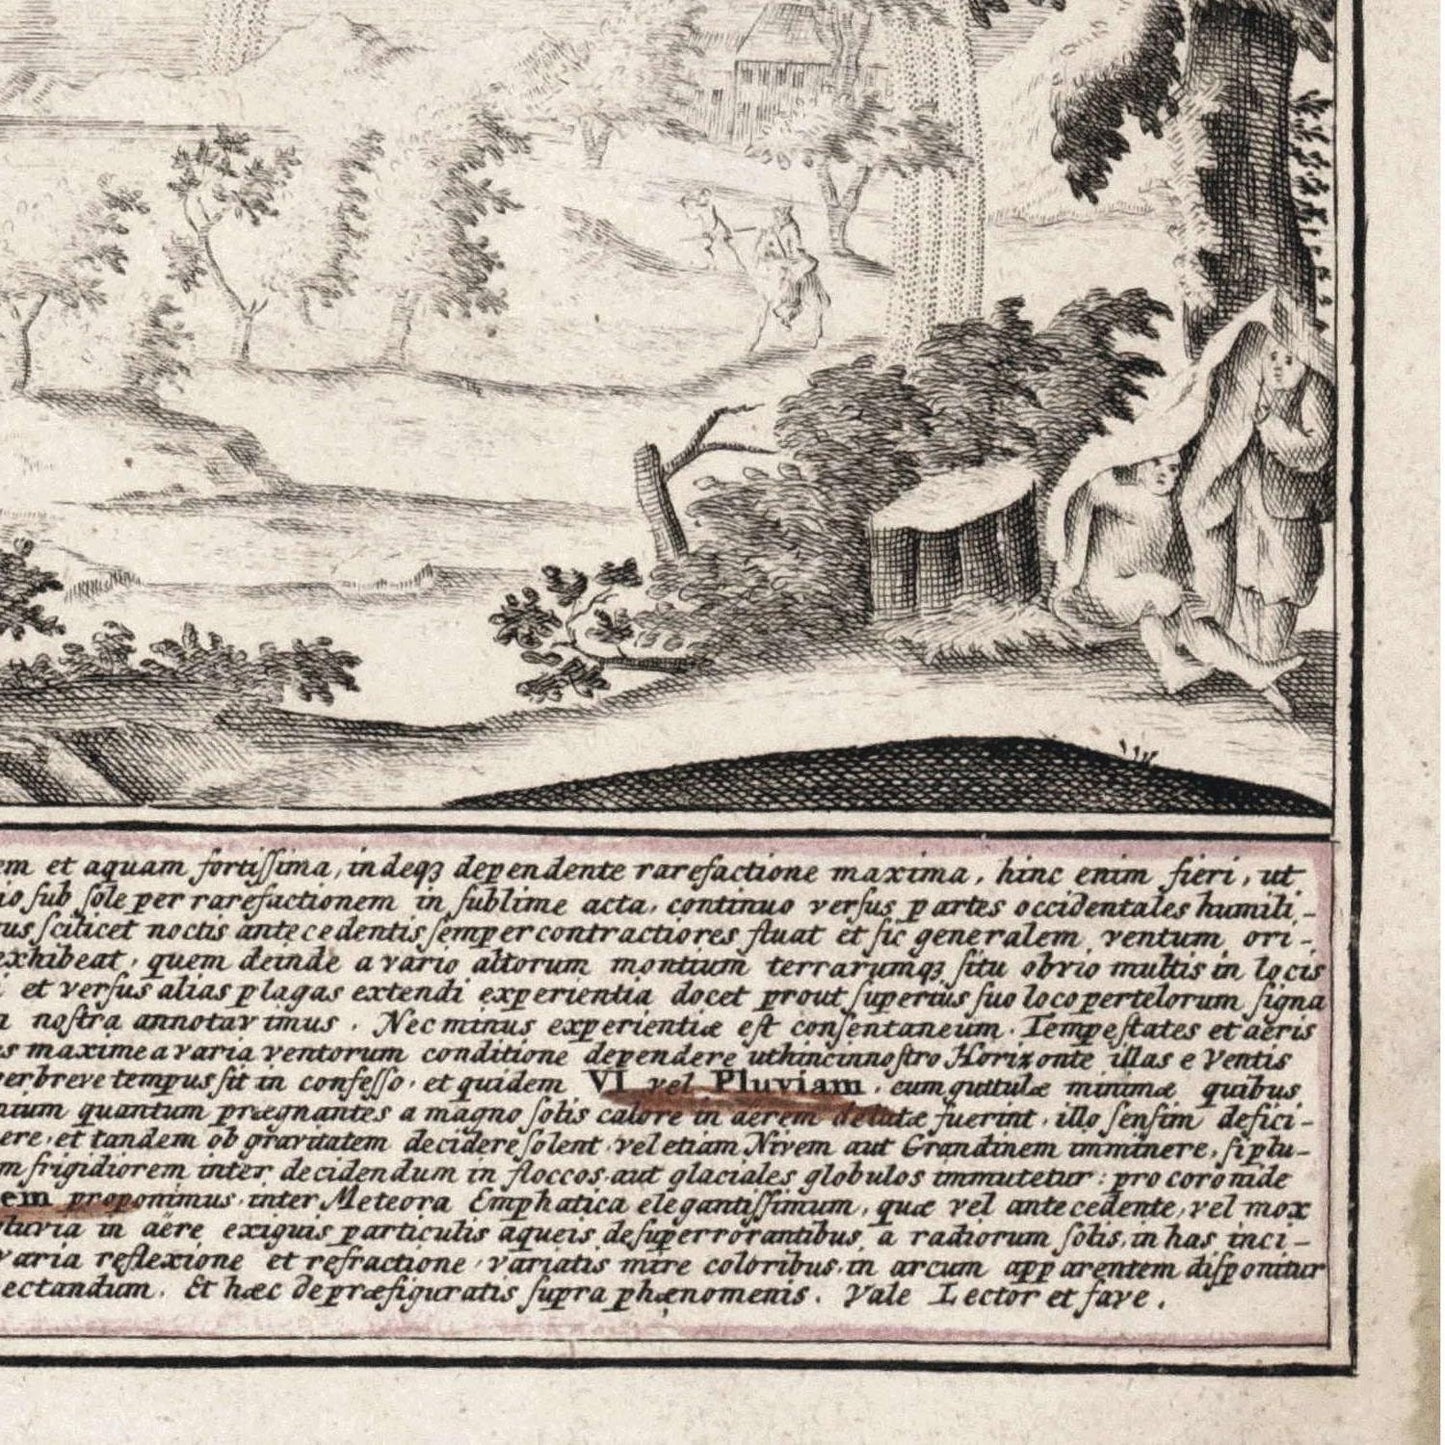 em et aquam fortiſſima, indeqꝫ dependente rarefactione maxima, hinc enim fieri, ut
io ſub ſole per rarefactionem in ſublime acta, continuo verſus partes occidentales humili-
us ſcilicet noctis antecedentis ſemper contractiores fluat et ſic generalem ventum ori-
exhibeat, quem deinde a vario altorum montium terrarumqꝫ ſitu obvio multis in locis
i et verſus alias plagas extendi experientia docet prout ſuperius ſuo loco per telorum ſigna
a noſtra annotavimus. Nec minus experientiæ eſt conſentaneum. Tempeſtates et aëris
s maxime a varia ventorum conditione dependere ut hinc in noſtro Horizonte illas e Ventis
per breve tempus ſit in confeſſo, et quidem VI vel Pluviam, cum guttulæ minimæ quibus
nium quantum prægnantes a magno ſolis calore in aerem delatæ fuerint, illo ſenſim defici-
ere, et tandem ob gravitatem decidere ſolent, vel etiam Nivem aut Grandinem imminere, ſi plu-
m frigidiorem inter decidendum in floccos aut glaciales globulos immutetur: pro coronide
em proponimus inter Meteora Emphatica elegantiſſimum, quæ vel antecedente, vel mox
pluvia in aëre exiguis particulis aqueis deſuper rorantibus, a radiorum ſolis, in has inci-
varia reflexione et refractione, variatis mire coloribus, in arcum apparentem diſponitur
ectandum. Et hæc de præfiguratis ſupra phænomenis. Vale Lector et fave.